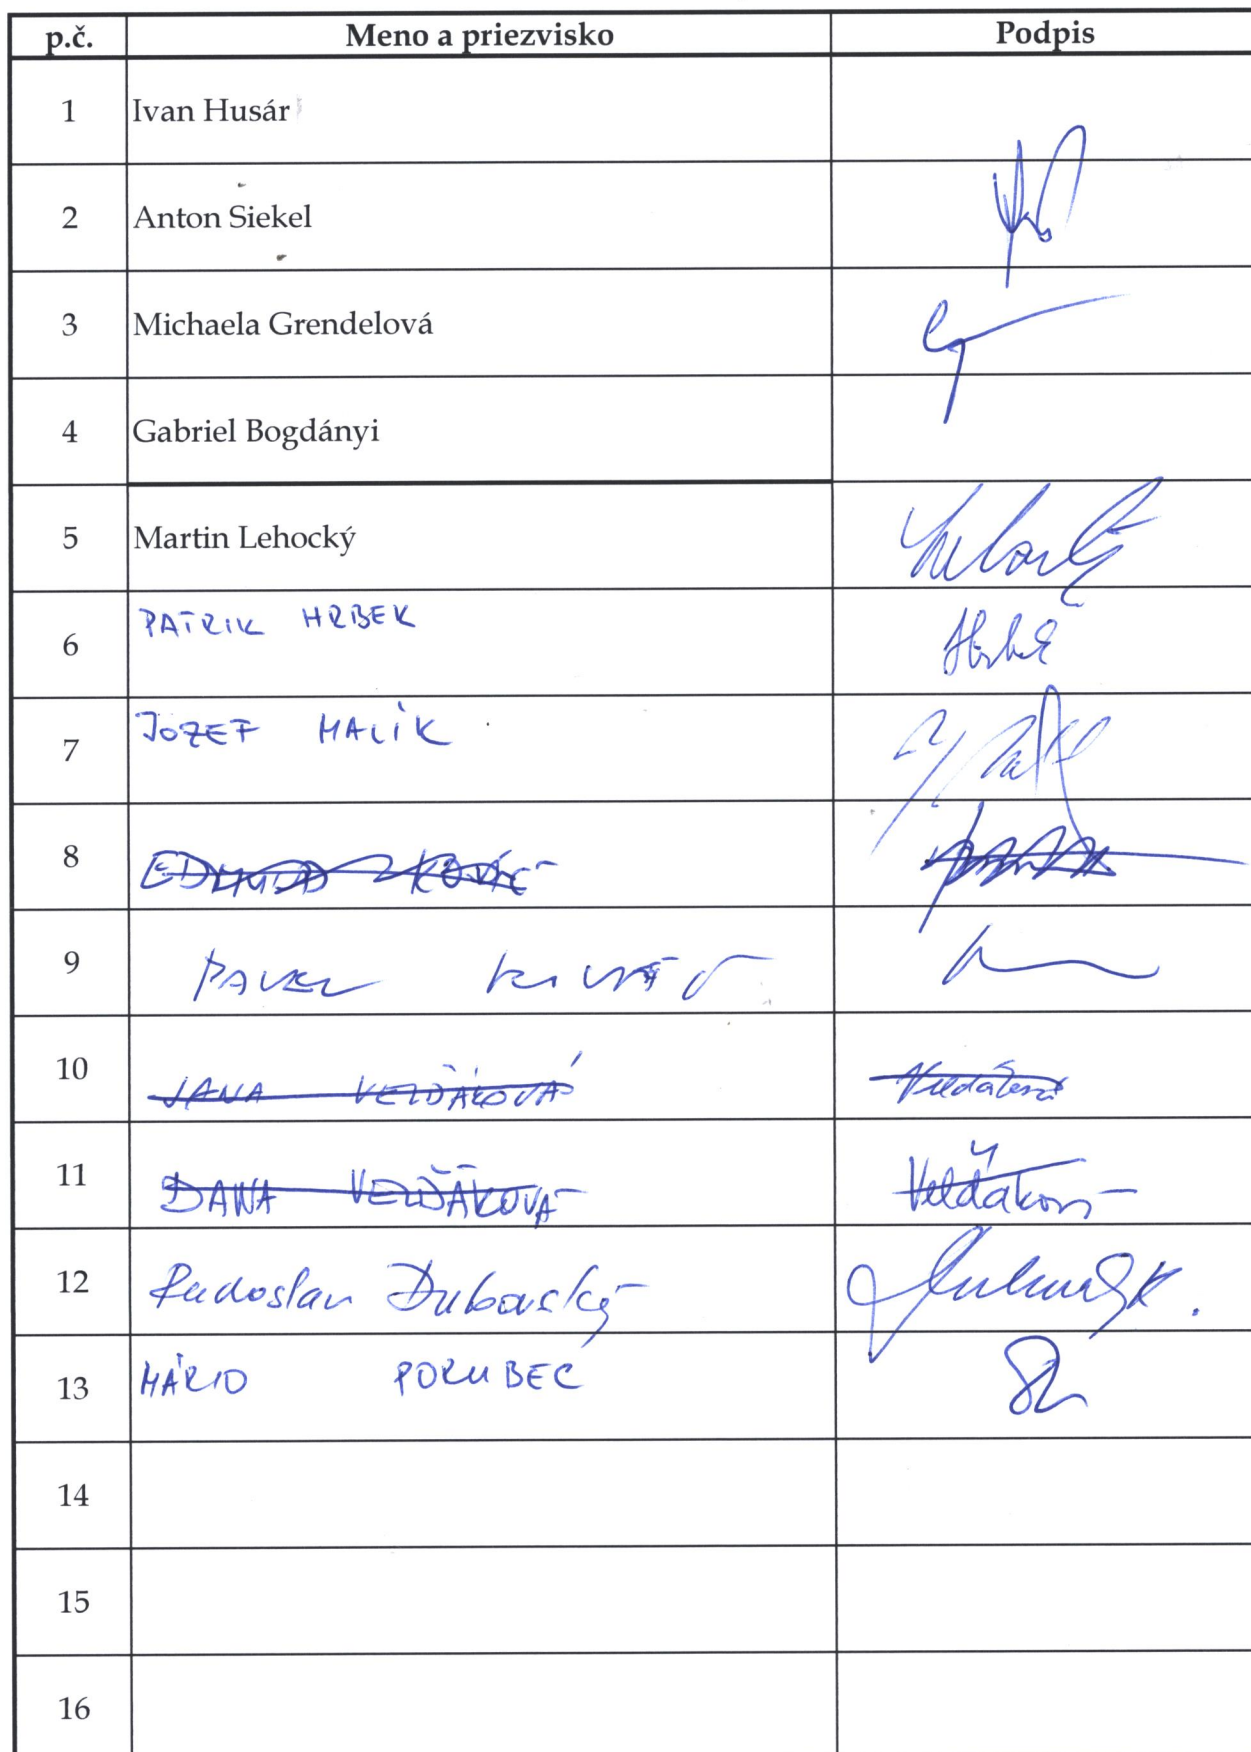 p.č. Meno a priezvisko Podpis
1 Ivan Husár
2 Anton Siekel
3 Michaela Grendelová
4 Gabriel Bogdányi
5 Martin Lehocký
6 PATRIK HRBEK
7 JOZEF MALÍK
8
9 PAVEL
10 JANA VELĎÁKOVÁ
11 DANA VELĎÁKOVÁ Velďáková
12 Radoslav Dubovský
13 MÁRIO PORUBEC
14
15
16